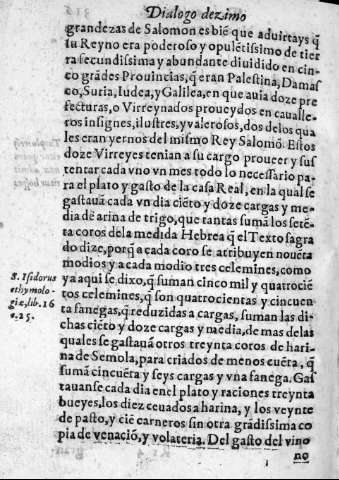 Dialogo dezimo
grandezas de Salomon es biẽ que aduirtays q̃
su Reyno era poderoso y opulẽtissimo de tier
ra fecundissima y abundante diuidido en cin-
co grãdes Prouincias, q̃ eran Palestina, Damas
co, Suria, Iudea, y Galilea, en que auia doze pre
fecturas, o Virreynados proueydos en caualle-
ros insignes, ilustres, y valerosos, dos delos qua
les eran yernos del mismo Rey Salomõ. Estos
doze Virreyes tenian a su cargo proueer y sus
tentar cada vno vn mes todo lo necessario pa-
ra el plato y gasto de la casa Real, en la qual se
gastauã cada vn dia ciẽto y doze cargas y me-
dia dẽ arina de trigo, que tantas sumã los setẽ-
ta coros dela medida Hebrea q̃ el Texto sagra
do dize, porq̃ a cada coro se atribuyen noueta
modios y a cada modio tres celemines, como
ya aqui se dixo, q̃ suman cinco mil y quatrociẽ
tos celemines, q̃ son quatrocientas y cincuen
ta fanegas, q̃ reduzidas a cargas, suman las di-
chas ciẽto y doze cargas y media, de mas delas
quales se gastauã otros treynta coros de hari-
na de Semola, para criados de menos cuẽta, q̃
sumã cincuẽta y seys cargas y vna fanega. Gas
tauanse cada dia en el plato y raciones treynta
bueyes, los diez ceuados a harina, y los veynte
de pasto, y ciẽ carneros sin otra grãdissima co
pia de venaciõ, y volateria. Del gasto del vino
no
S. Isidorus
ethymolo-
giæ, lib. 16
c. 25.